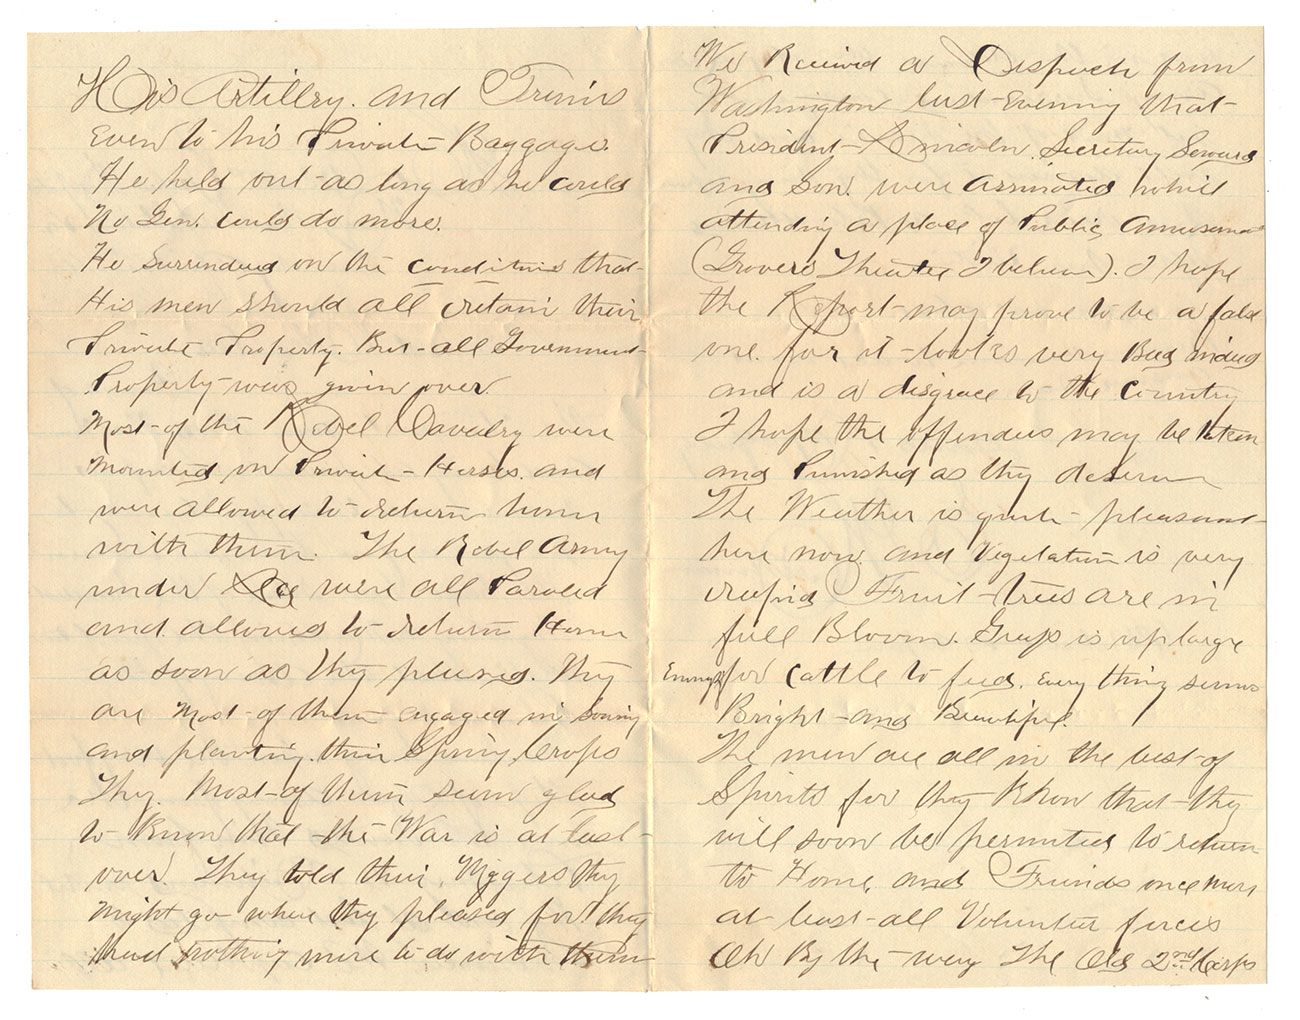 His Artillery. and Trains
Even to his Private Baggage.
He held out as long as he could
No Gen. could do more.
He Surrendered on the conditions that
His men should all retain their
Private Property. But all Government
Property was given over
Most of the Rebel Cavalry were
mounted on Private Horses. and
were allowed to return home
with them. The Rebel Army
under Lee were all Paroled
and allowed to return Home
as soon as they pleased. They
are Most of them engaged in sowing
and planting their Spring Crops
They. Most of them seem glad
to Know that the War is at last
over. They told their Niggers they
might go where they pleased for they
had nothing more to do with them
We Received a Dispatch from
Washington last Evening that
President Lincoln. Secretary Seward
and son. were assinated while
attending a place of Public Amusement
(Grovers Theatre I believe). I hope
the Report may prove to be a false
one. for it looks very Bad indeed
and is a disgrace to the Country
I hope the offenders may be taken
and Punished as they deserve
The Weather is quite pleasant
here now. and Vegetation is very
Fruit trees are in
full Bloom. Grass is up large
Enough for Cattle to feed. Every thing seems
Bright and Beautiful.
The men are all in the best of
Spirits for they Know that they
will soon be permitted to return
to Home. and Friends once more
at least all Volunteer forces
Oh By the way The Old 2nd Corps